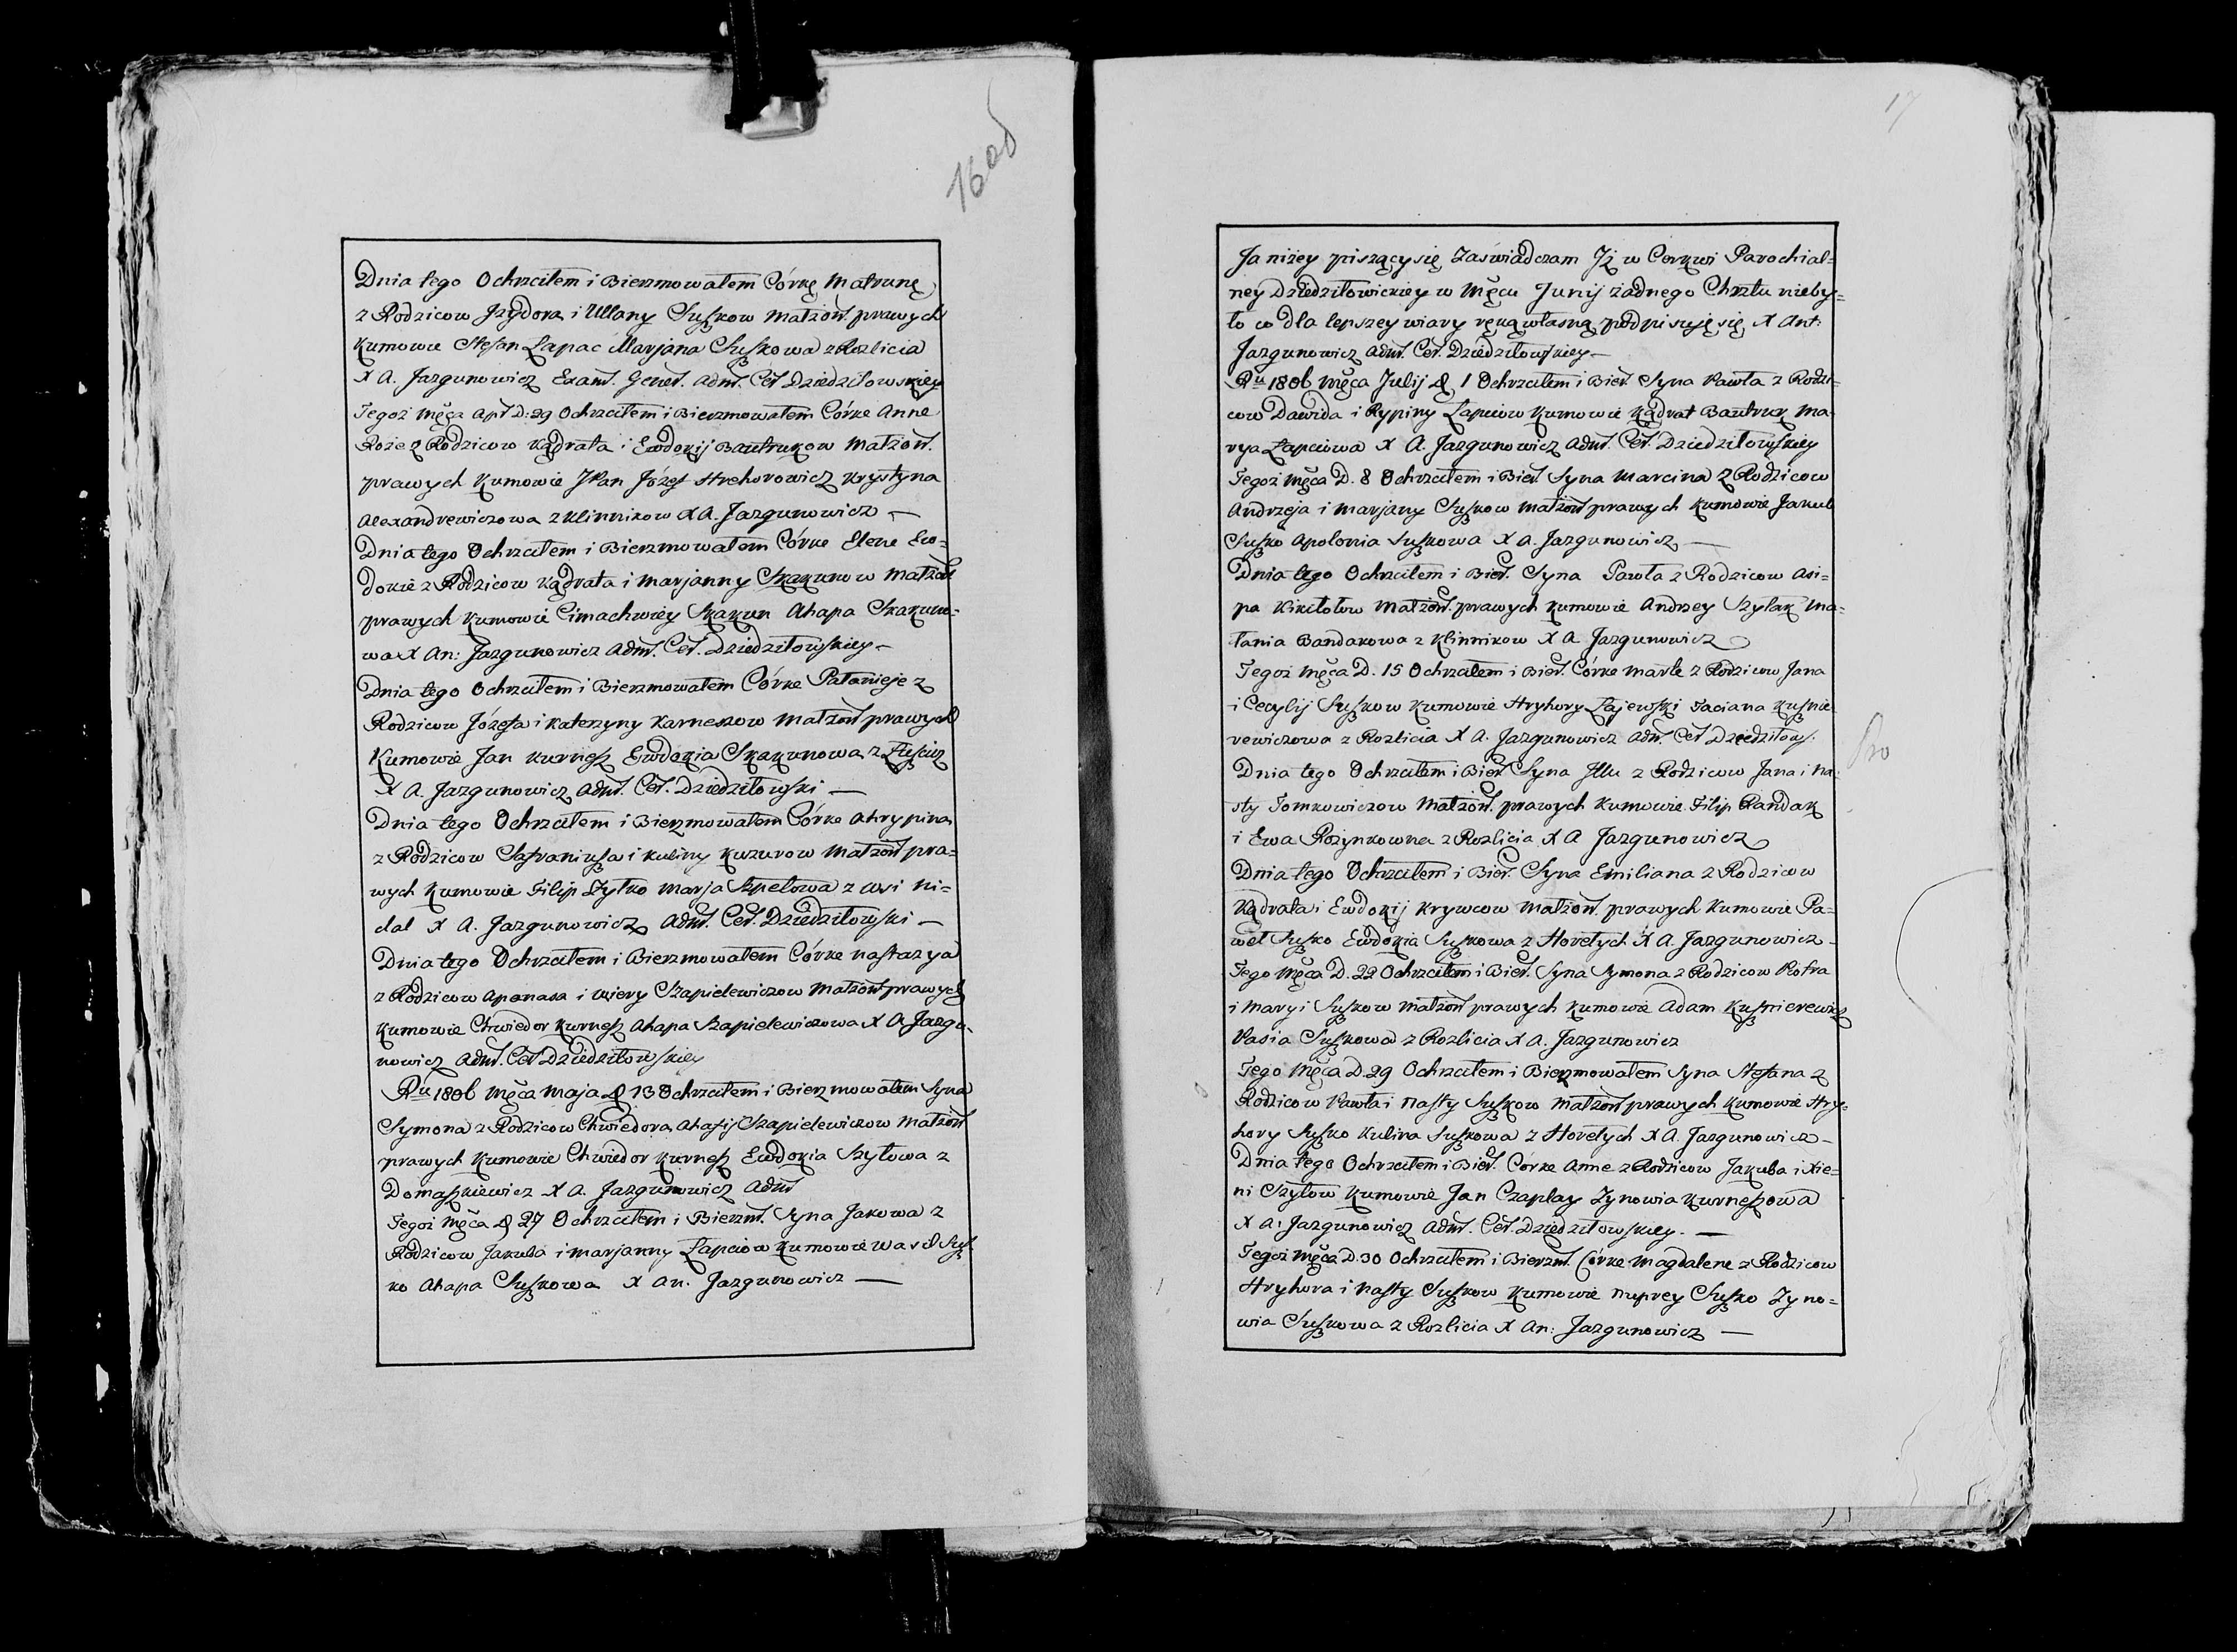 16 об
Dnia tego Ochrzciłem i Bierzmowałem Córkę Matrunę
z Rodzicow Jzydora i Ullany Suszkow Małżoń. prawych
Kumowie Stefan Łapac Marjana Suszkowa z Rozlicia
X A. Jazgunowicz Exam. Gener. Adm. Cer. Dziedziłowskiey
Tegoż Męca Apr D: 29 Ochrzciłem i Bierzmowałem Córke Anne
Roże z Rodzicow Kądrata i Ewdokij Bautrukow Małżoń.
prawych Kumowie JPan Józef Hrehorowicz Krystyna
Alexandrewiczowa z Klinnikow X A. Jazgunowicz —
Dnia tego Ochrzciłem i Bierzmowałem Córke Elene Ew=
dokie z Rodzicow Kądrata i Marjanny Skakunow Małżoń
prawych Kumowie Cimachwiey Skakun Ahapa Skakuno=
wa X An: Jazgunowicz Adm. Cer. Dziedziłowskiey —
Dnia tego Ochrzciłem i Bierzmowałem Córke Pałanieje z
Rodzicow Józefa i Katerzyny Karneszow Małżoń prawych
Kumowie Jan Kurnesz Ewdokia Skakunowa z
X A. Jazgunowicz Adm. Cer. Dziedziłowski —
Dnia tego Ochrzciłem i Bierzmowałem Córke Ahrypina
z Rodzicow Safraniusza i Kuliny Kuzurow Małżoń pra=
wych Kumowie Filip Szytko Marja Szpetowa z wsi Ni=
dal X A. Jazgunowicz Adm. Cer. Dziedziłowski —
Dnia tego Ochrzciłem i Bierzmowałem Córke Nastazya
z Rodzicow Apanasa i Wiery Szapielewiczow Małżoń prawych
Kumowie Chwiedor Kurnesz Ahapa Szapielewiczowa X A Jazgu-
nowicz Adm. Cer Dziedziłowskiey
Ru 1806 Męca Maja D 13 Ochrzciłem i Bierzmowałem Syna
Symona z Rodzicow Chwiedora Ahafij Szapielewiczow Małżoń
prawych Kumowie Chwiedor Kurnesz Ewdokia Szyłowa z
Domaszkiewicz X A. Jazgunowicz Adm
Tegoż Męca D 27 Ochrzciłem i Bierzm. Syna Jakowa z
Rodzicow Jakuba i Marjanny Łapciow Kumowie Wasil Susz
ko Ahapa Suszkowa X An. Jazgunowicz —
17
Ja niżey piszący się Zaświadczam Jż w Cerkwi Parochial=
ney Dziedziłowickiey w Męcu Junij żadnego Chrztu nieby=
ło co dla lepszey wiary ręką własną podpisuję się X Ant:
Jazgunowicz Adm. Cer. Dziedziłowskiey —
Ru 1806 Męca Julij D 1 Ochrzciłem i Bier. Syna Pawła z Rodzi=
cow Dawida i Rypiny Łapciow Kumowie Kądrat Bautruk Ma-
rya Łapciowa X A. Jazgunowicz Adm. Cer. Dziedziłowskiey
Tegoż Męca D. 8 Ochrzciłem i Bier. Syna Marcina z Rodzicow
Andrzeja i Marjany Suszkow Małżoń prawych Kumowie Jakub
Suszko Apolonia Suszkowa X A. Jazgunowicz —
Dnia tego Ochrzciłem i Bier. Syna Pawła z Rodzicow Asi=
pa Kikiłołow Małżoń. prawych Kumowie Andrzey Szylak Ma-
łania Bandakowa z Klinnikow X A Jazgunowicz
Tegoż Męca D. 15 Ochrzciłem i Bier. Córke Marte z Rodzicow Jana
i Cecylij Suszkow Kumowie Hryhory Łajewski Taciana Kusznie
rewiczowa z Rozlicia X A. Jazgunowicz Adm. Cer Dziedziłows.
Dnia tego Ochrzciłem i Bier. Syna Jllu z Rodzicow Jana i Na
sty Tomkowiczow Małżoń. prawych Kumowie Filip Randak
i Ewa Rożynkowna z Rozlicia X A Jazgunowicz
Dnia tego Ochrzciłem i Bier. Syna Emiliana z Rodzicow
Kądrata i Ewdokij Krywcow Małżoń. prawych Kumowie Pa=
weł Suszko Ewdokia Suszkowa z Horełych X A. Jazgunowicz —
Tego Męca D. 22 Ochrzciłem i Bier. Syna Symona z Rodzicow Potra
i Maryi Suszkow Małżoń prawych Kumowie Adam Kusznierewicz
Pasia Suszkowa z Rozlicia X A. Jazgunowicz
Tego Męca D. 29 Ochrzciłem i Bierzmowałem Syna Stefana z
Rodzicow Pawła i Nasty Suszkow Małżoń prawych Kumowie Hry=
hory Suszko Kulina Suszkowa z Horełych X A. Jazgunowicz —
Dnia tego Ochrzciłem i Bier. Córke Anne z Rodzicow Jakuba i Xie=
ni Szyłow Kumowie Jan Czaplay Zynowia Kurneszowa
X A: Jazgunowicz Adm. Cer. Dziedziłowskiey. —
Tegoż Męca D. 30 Ochrzciłem i Bierzm. Córke Magdalene z Rodzicow
Hryhora i Nasty Suszkow Kumowie Suszko Zyno=
wia Suszkowa z Rozlicia X An: Jazgunowicz —